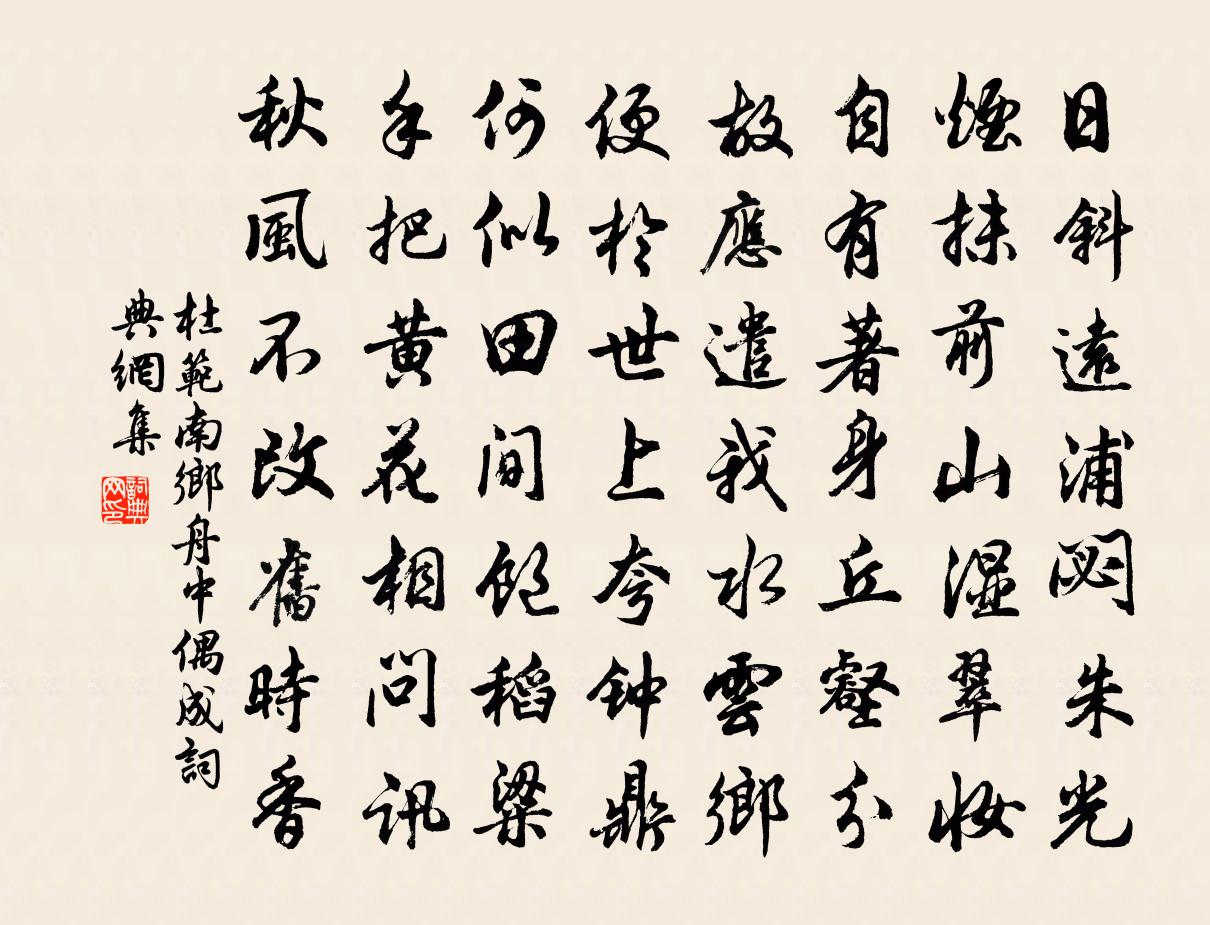 日斜遠浦閟朱光
煙抹前山濕翠妝
自有著身丘壑分
故應遣我水雲鄉
便於世上夸钟鼎
何似田間飽稻粱
手把黄花相問訊
秋風不改舊時香
杜範南鄉舟中偶成詞
典網集
詞典
网印